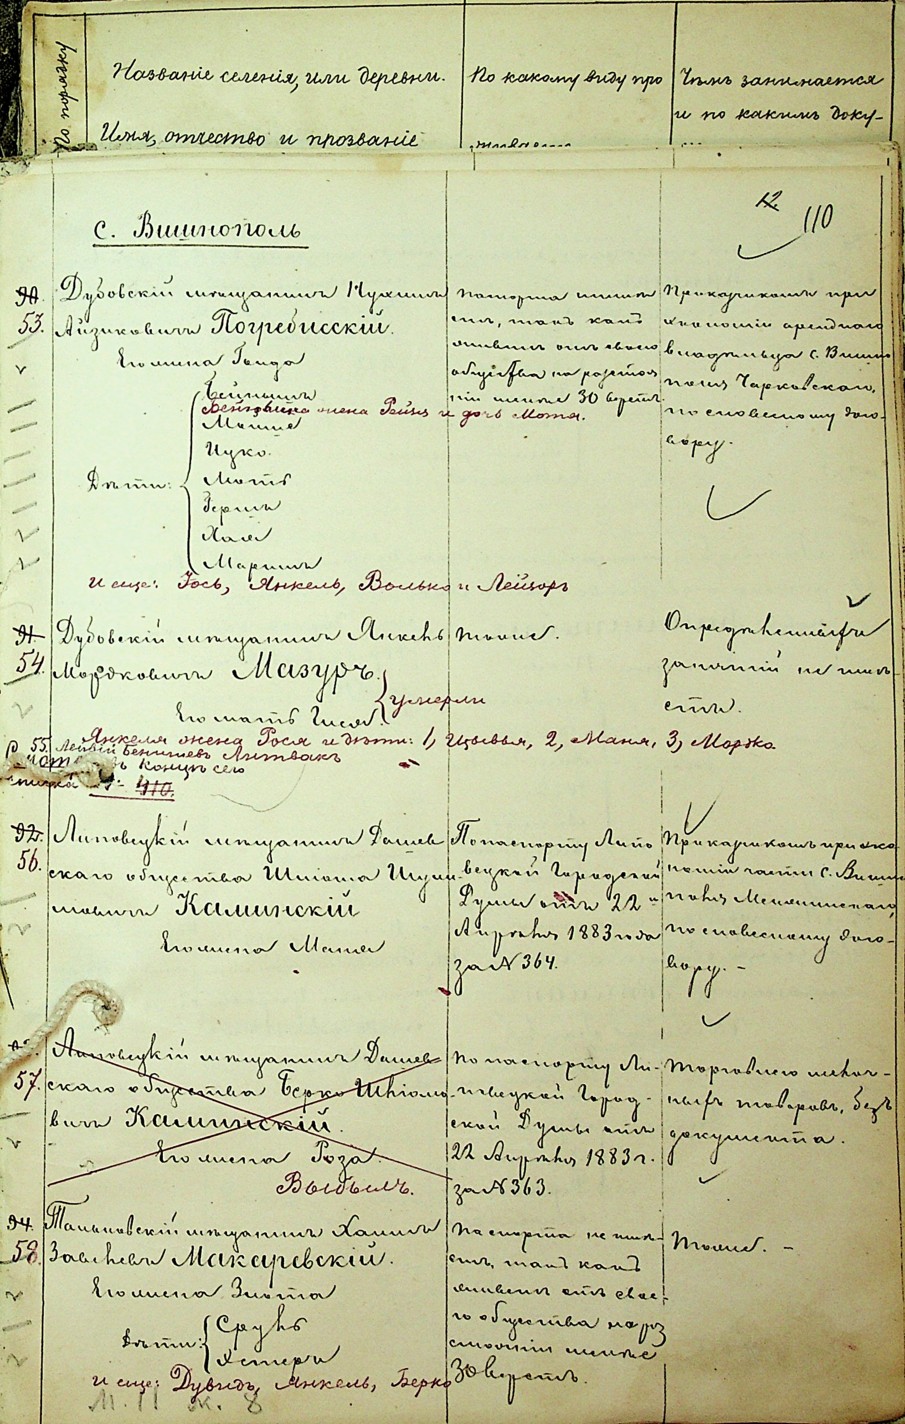 По порядку
Названіе селенія, или деревни.
Имя, отчество и прозваніе
По какому виду про
живаетъ
Чѣмъ занимается
и по какимъ доку-
12
110
с. Вишнополь
90.
53.
Дубовскій мѣщанинъ Нухимъ
Айзиковичъ Погребисскій.
Его жена Гинда
Дѣти:
Бейнышъ
Бейныша жена Рейзя и дочь Мотя.
Мошие
Ицко.
Мотъ
Гершъ
Хая
Маріимъ
и еще: Іось, Янкель, Волько и Лейзоръ
паспорта не имѣ-
етъ, такъ какъ
живетъ отъ своего
общества на разстоя
ніи менѣе 30 верстъ
Прикащикомъ при
экономіи арендного
владѣльца с. Вишно
поля Чарковскаго,
по словесному дого-
вору.
91.
54.
Дубовскій мѣщанинъ Янкель
Мордковичъ Мазуръ.
Его мать Гися.
умерли
Янкеля жена Рося и дѣти: 1, Цывья, 2, Маня, 3, Мордко
тоже.
Опредѣленныхъ
занятій не имѣ-
етъ.
55. Лейзіи Бенишевъ Литвакъ
въ концѣ сего
списка № 410.
92.
56.
Липовецкій мѣщанинъ Дашев
скаго общества Шліома Шули
мовичъ Каминскій
Его жена Маша
По паспорту Липо
вецкой Городской
Думы отъ 22
Апрѣля 1883 года
за N 364.
Прикащикомъ при эко
номіи части с. Вишно
поля Менжинскаго,
по словесному дого-
вору. -
57.
Липовецкій мѣщанинъ Дашев-
скаго общества Берко Шліомо-
вичъ Каминскій.
Его жена Роза.
Выбылъ.
По паспорту Ли-
повецкой Город-
ской Думы отъ
22 Апрѣля 1883 г.
за N 363.
Торговлею мелоч-
ныхъ товаровъ, безъ
документа.
94.
58.
Тальновскій мѣщанинъ Хаимъ
Завелевъ Макаревскій.
Его жена Злота
Дѣти:
Сруль
Хетери
и еще: Дувидъ, Янкель, Берко
М. 11 ж. 8
Паспорта не имѣ-
етъ, такъ какъ
живетъ отъ свое-
го общества на раз
стояніи менѣе
30 верстъ.
Тоже. -